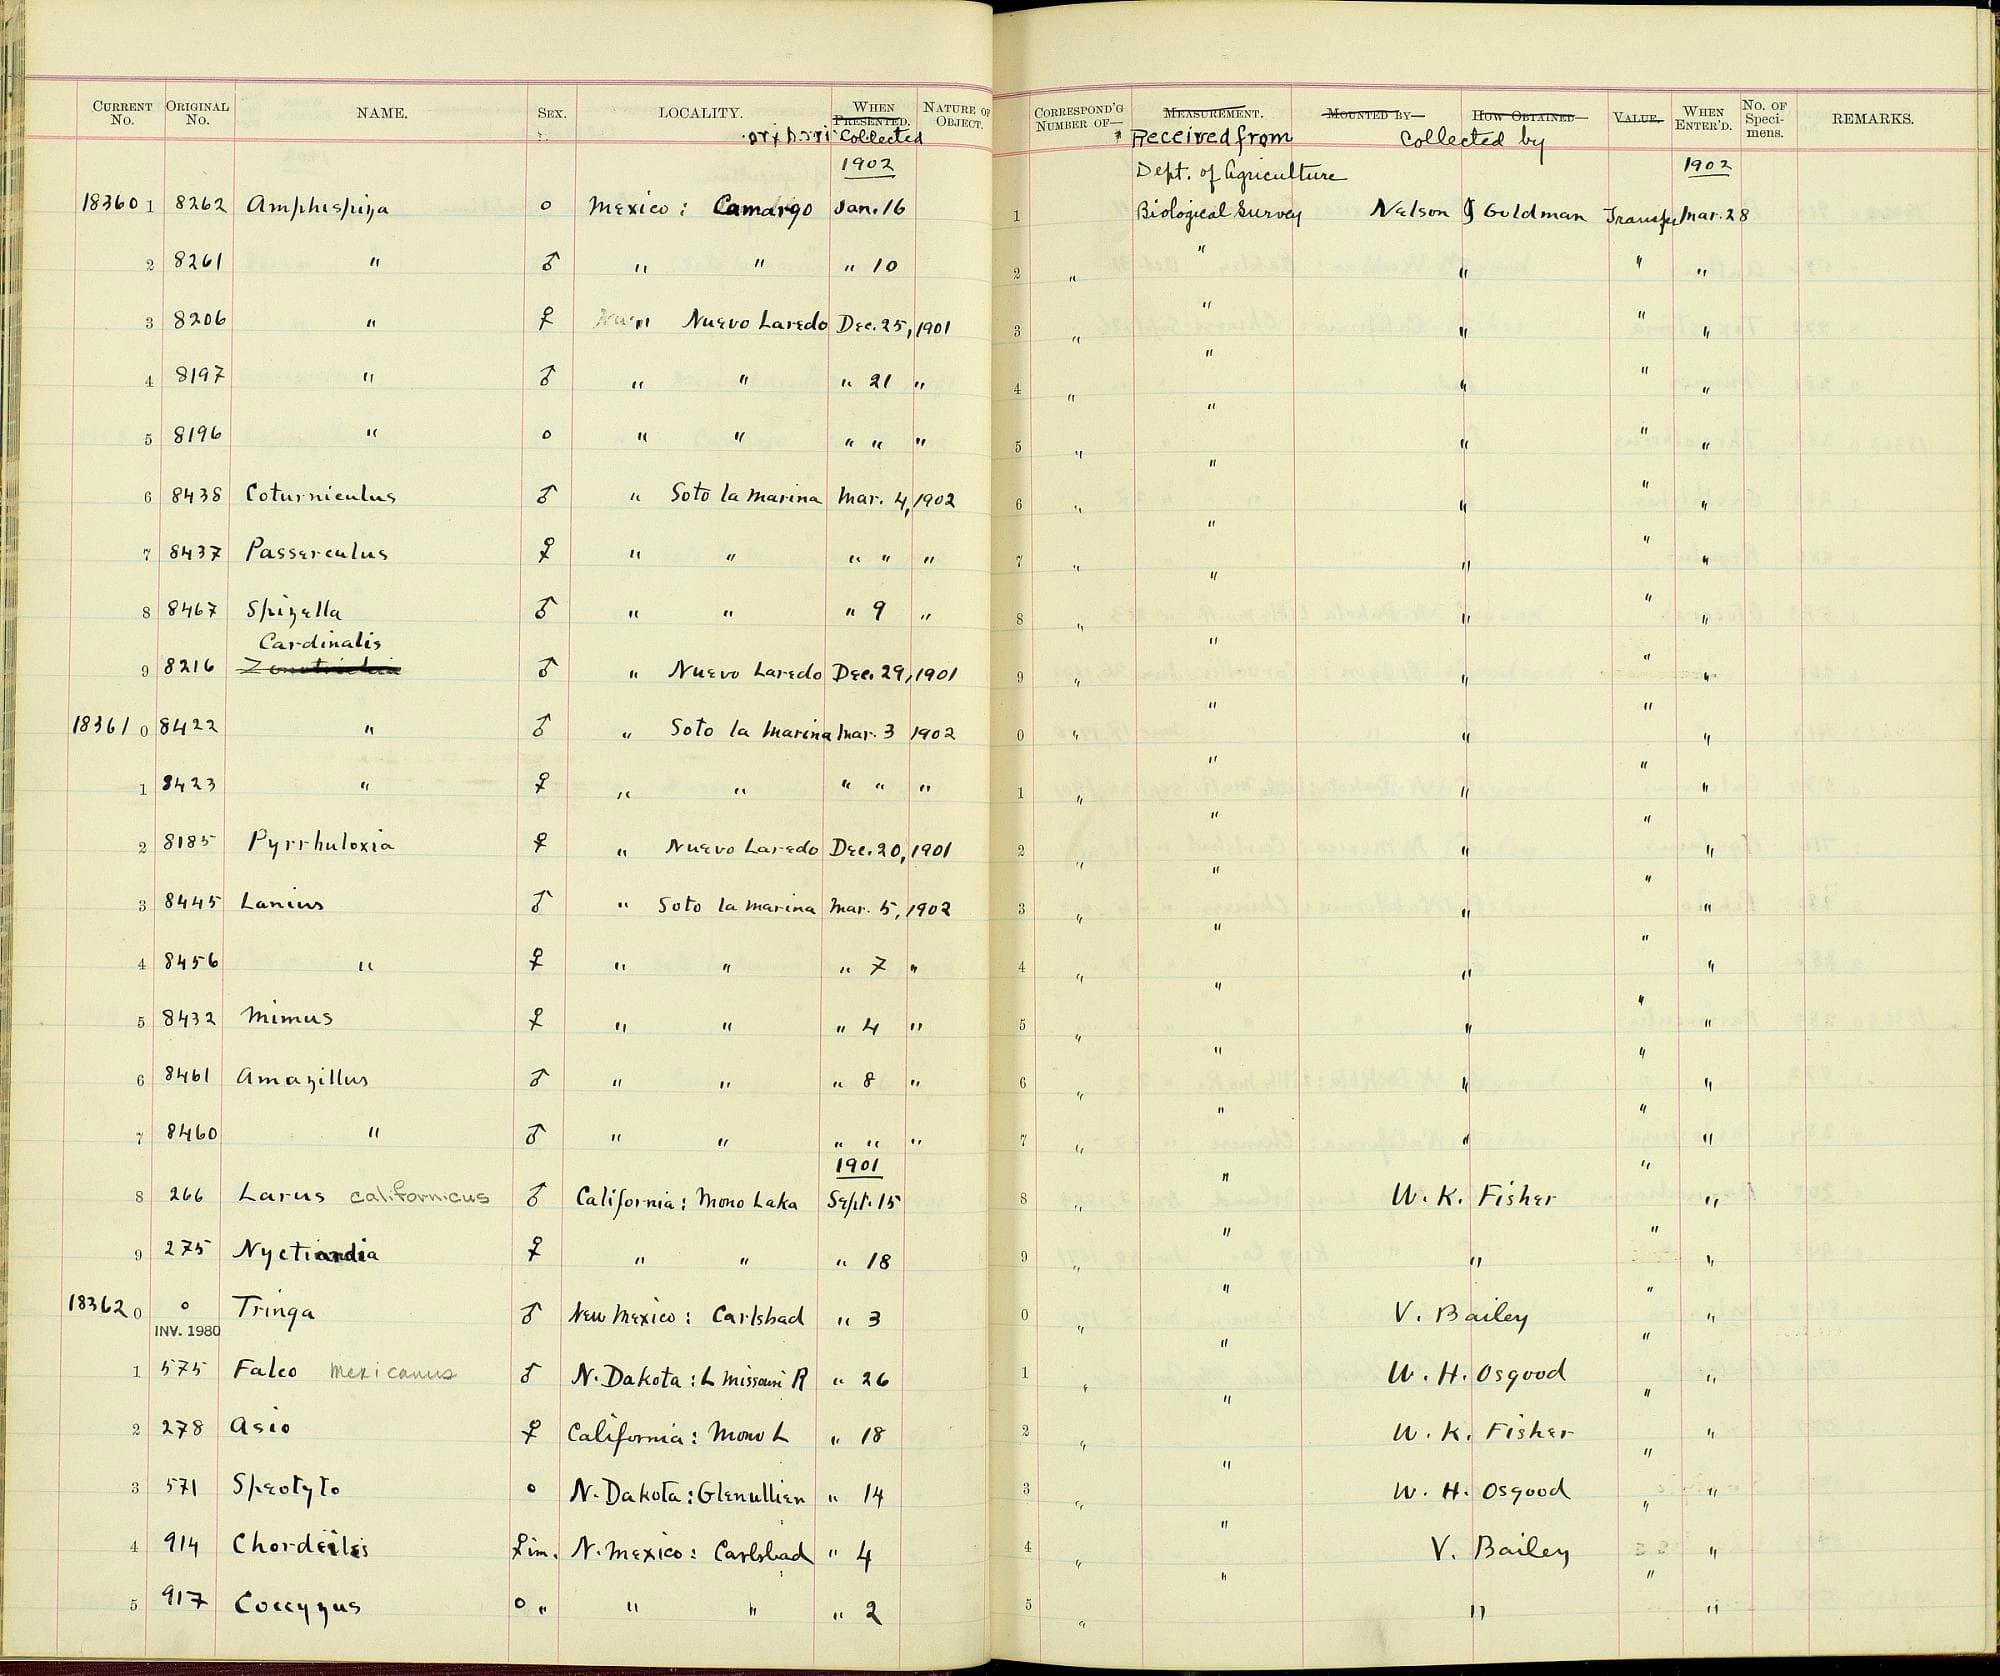 CURRENT No. ORIGINAL No. NAME. SEX. LOCALITY. WHEN PRESENTED. Collected NATURE OF OBJECT. CORRESPOND'G NUMBER OF— MEASUREMENT. Received from MOUNTED BY— HOW OBTAINED— Collected by VALUE. WHEN ENTER'D. No. OF Speci-mens. REMARKS.
1902 Dept. of Agriculture 1902
18360 1 8262 Amphispiza o Mexico: Camargo Jan. 16 1 Biological Survey Nelson & Goldman Transfer Mar. 28
2 8261 " ♂ " " " 10 2 " " " " "
3 8206 " ♀ Nuevo Laredo Dec. 25, 1901 3 " " " " "
4 8197 " ♂ " " " 21 " 4 " " " " "
5 8196 " o " " " " " 5 " " " " "
6 8438 Coturniculus ♂ " Soto la Marina Mar. 4, 1902 6 " " " " "
7 8437 Passerculus ♀ " " " " " 7 " " " " "
8 8467 Spizella ♂ " " " 9 " 8 " " " " "
Cardinalis
9 8216 Zonotrichia ♂ " Nuevo Laredo Dec. 29, 1901 9 " " " " "
18361 0 8422 " ♂ " Soto la Marina Mar. 3 1902 0 " " " " "
1 8423 " ♀ " " " " " 1 " " " " "
2 8185 Pyrrhuloxia ♀ " Nuevo Laredo Dec. 20, 1901 2 " " " " "
3 8445 Lanius ♂ " Soto la Marina Mar. 5, 1902 3 " " " " "
4 8456 " ♀ " " " 7 " 4 " " " " "
5 8432 Mimus ♀ " " " 4 " 5 " " " " "
6 8461 Amazillus ♂ " " " 8 " 6 " " " " "
7 8460 " ♂ " " " " " 7 " " " " "
1901
8 266 Larus californicus ♂ California: Mono Lake Sept. 15 8 " " W. K. Fisher " "
9 275 Nycticordia ♀ " " " 18 9 " " " " "
18362 0 o Tringa ♂ New Mexico: Carlsbad " 3 0 " " V. Bailey " "
INV. 1980
1 575 Falco mexicanus ♂ N. Dakota: L Missouri R " 26 1 " " W. H. Osgood " "
2 278 Asio ♀ California: Mono L " 18 2 " " W. K. Fisher " "
3 571 Speotyto o N. Dakota: Glenullien " 14 3 " " W. H. Osgood " "
4 914 Chordeiles ♀ im. N. Mexico: Carlsbad " 4 4 " " V. Bailey "
5 917 Coccyzus o " " " " 2 5 " " " " "